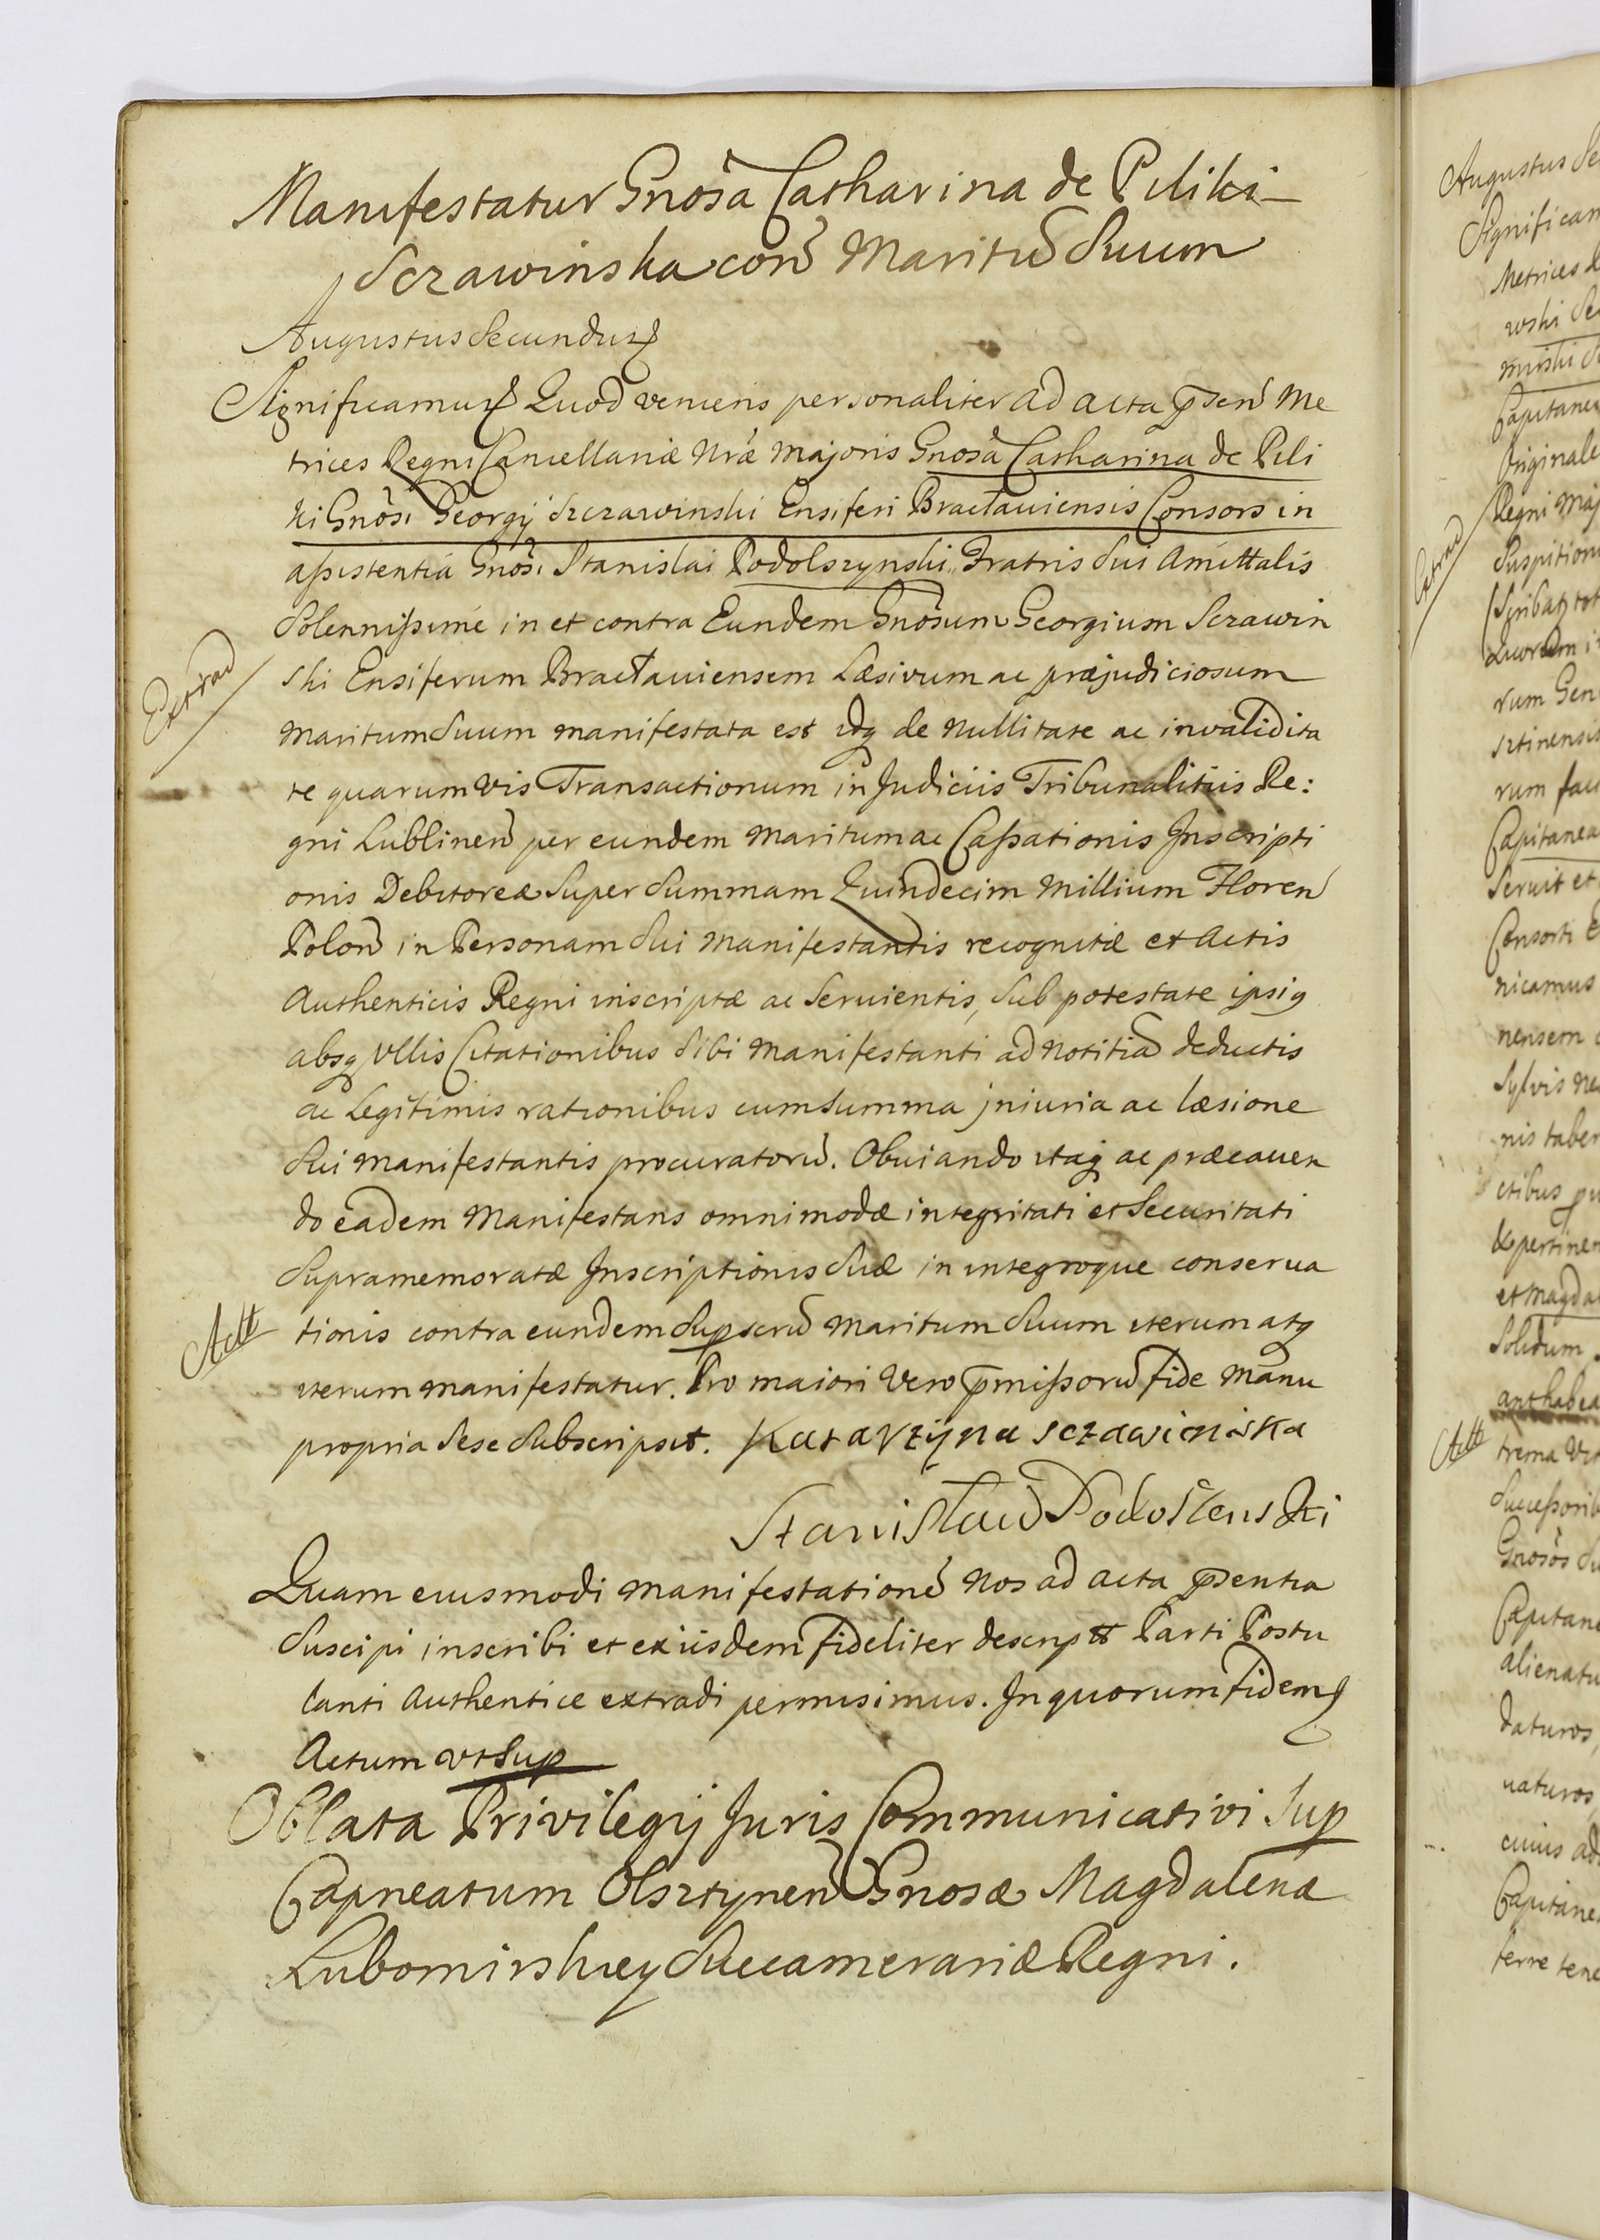 Manifestatur Gnosa Catharina de Piliki
Sczawinska con Maritu Suum
Augustus Secundus
Significamus Quod veniens personaliter ad acta psen Me
trices Regni Cancellariæ Nræ Majoris Gnosa Catharina de Pili
ki Gnosi Georgij Szczawinski Ensiferi Bractaviensis Consors in
assistentia Gnosi Stanislai Podolszynski Fratris sui Amittalis
Solennissime in et contra Eundem Gnosum Georgium Sczawin
ski Ensiferum Bractauiensem Læsivum ac præjudiciosum
Maritum Suum manifestata est idq de Nullitate ac invalidita
te quarumvis Transactionum in Judiciis Tribunalitiis Re:
gni Lublinen per eundem Maritum ac Cassationis Inscripti
onis Debitoreæ Super Summam Quindecim Millium Floren
Polon in Personam Sui Manifestantis recognitæ et Actis
Authenticis Regni inscriptæ ac Seruientis, Sub potestate ipsig
absq Vllis Citationibus Sibi Manifestanti ad Notitia deductis
ac Legitimis rationibus cum Summa jniuria ac læsione
Sui Manifestantis procuratoru. Obuiando itaq ac præcauen
do eadem Manifestans omnimodæ integritati et Securitati
Supramemoratæ Inscriptionis Suæ in integroque conserua
tionis contra eundem Supscru Maritum Suum iterum atq
iterum manifestatur. Pro maiori Vero pmissoru fide Manu
propria Sese Subscripsit. Katarzyna sczawinska
Stanislaw Podolszenski
Quam eiusmodi Manifestatione Nos ad acta psentia
Suscipi inscribi et ex iisdem fideliter descrip tt Parti Postu
lanti Authentice extradi permisimus. In quorum fidem
Actum vt Sup
Oblata Privilegij Juris Communicativi Sup
Capneatum Olsztynen Gnosæ Magdalenæ
Lubomirskiey Succamerariæ Regni.
Extrad
Actt
Augustus Se
Significam
Metrices
wski Se
minski S
Capitaneu
Originale
Regni Maj
Suspition
Quorum i
rum Gen
sztinensis
rum fac
Capitanea
Seruit et
Consorti E
nicamus
nensem
Sylvis ne
nis taber
ctibus
pertinen
et Magda
Solidum
trema Vit
Successorib
Gnosos Su
Capitane
alienatu
daturos,
uaturos
cuius ad
Capitane
ferre tene
Extrad
Actt